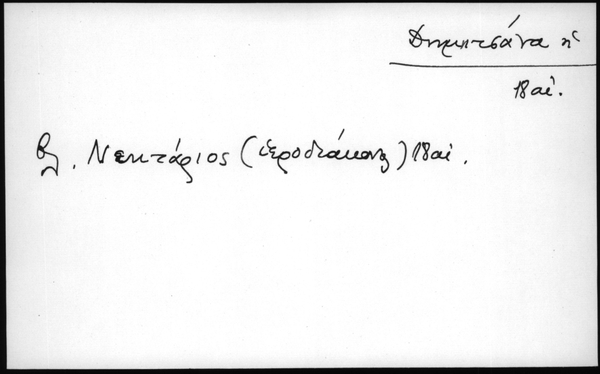 Δημητσάνα ἡ
18 αἰ.
βλ. Νεκτάριος (ἱεροδιάκονος) 18 αἰ.